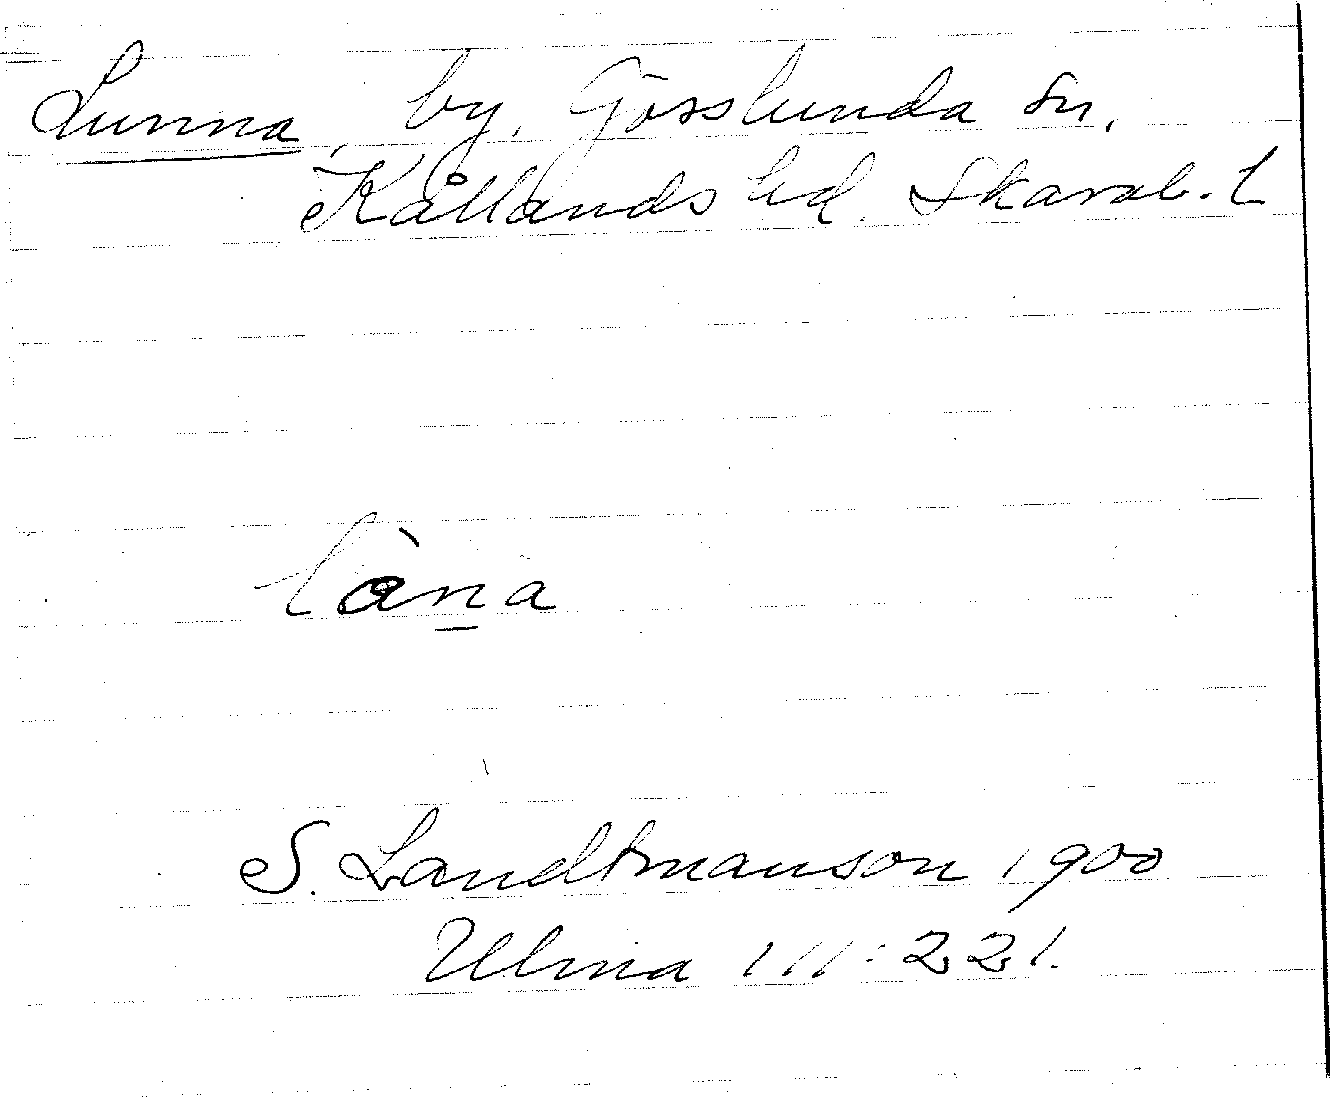 Lunna, by, Gösslunda sn,
Kållands hd. Skarab. l
làn̲a
S. Landtmanson 1900
Ulma 111:221.